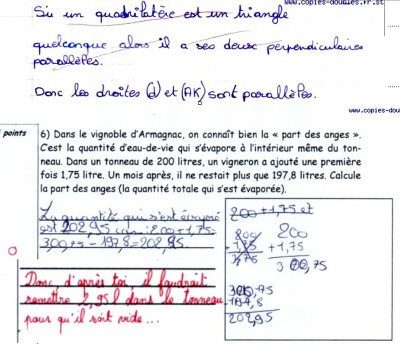 www.copies-doubles.fr.st
Si un quadrilatère est un triangle
quelconque alors il a ses deux perpendiculaires
parallèles.
Donc les droites (d) et (AK) sont parallèles.
www.copies-doubles
points
6) Dans le vignoble d'Armagnac, on connaît bien la « part des anges ».
C'est la quantité d'eau-de-vie qui s'évapore à l'intérieur même du ton-
neau. Dans un tonneau de 200 litres, un vigneron a ajouté une première
fois 1,75 litre. Un mois après, il ne restait plus que 197,8 litres. Calcule
la part des anges (la quantité totale qui s'est évaporée).
La quantité qui s'est évaporé
est 202,95 car : 200 + 1,75 =
300,75 - 197,8 = 202,95.
0
Donc, d'après toi, il faudrait
remettre 2,95 l dans le tonneau
pour qu'il soit vide...
200 + 1,75 et
200 200
+ 1,75 + 1,75
3,75 300,75
300,75
- 197,8
202,95